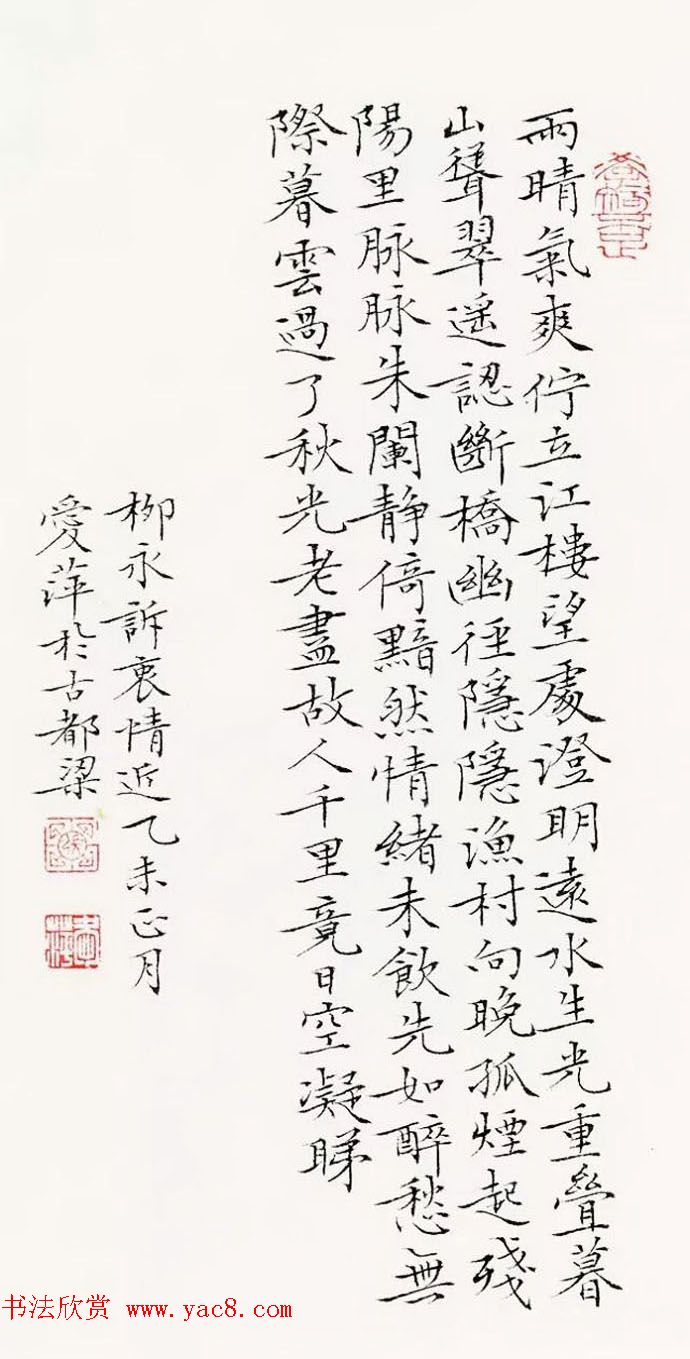 雨晴氣爽佇立江樓望處澄明遠水生光重疊暮
山聳翠遥認斷橋幽徑隱隱漁村向晚孤煙起殘
陽里脉脉朱闌静倚黯然情緒未飲先如醉愁無
際暮雲過了秋光老盡故人千里竟日空凝睇
柳永訴衷情近乙未正月
愛萍於古都梁
书法欣赏 www.yac8.com